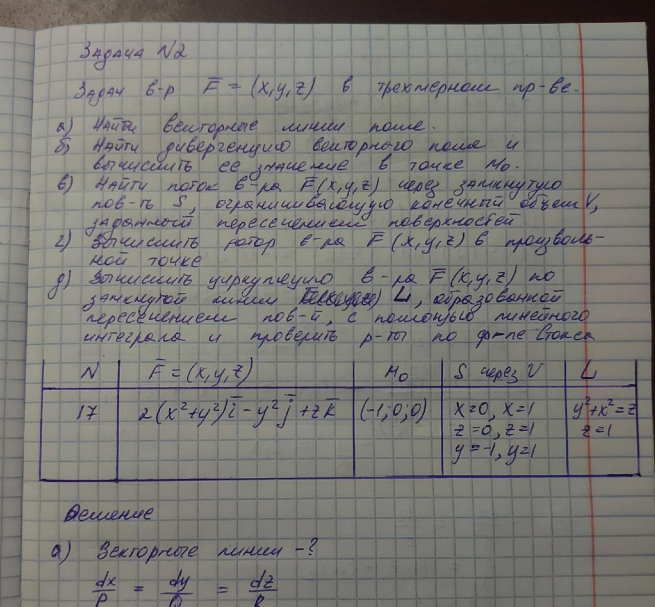 Задача N2
Задан в-р F̅ = (x,y,z) в трехмерном пр-ве.
а) Найти векторные линии поля.
б) Найти дивергенцию векторного поля и
вычислить ее значение в точке M₀.
в) Найти поток в-ра F̅(x,y,z) через замкнутую
пов-ть S, ограничивающую конечный объем V,
заданный пересечением поверхностей
г) Вычислить ротор в-ра F̅(x,y,z) в произволь-
ной точке
д) Вычислить циркуляцию в-ра F̅(x,y,z) по
замкнутой линии L, образованной
пересечением пов-й, с помощью линейного
интеграла и проверить р-ты по ф-ле Стокса
N F̅=(x,y,z) M₀ S через V L
17 2(x²+y²)i̅ - y²j̅ + zk̅ (-1;0;0) x=0, x=1 y²+x²=z
z=0, z=1 z=1
y=-1, y=1
Решение
а) Векторные линии -?
dx/P = dy/Q = dz/R